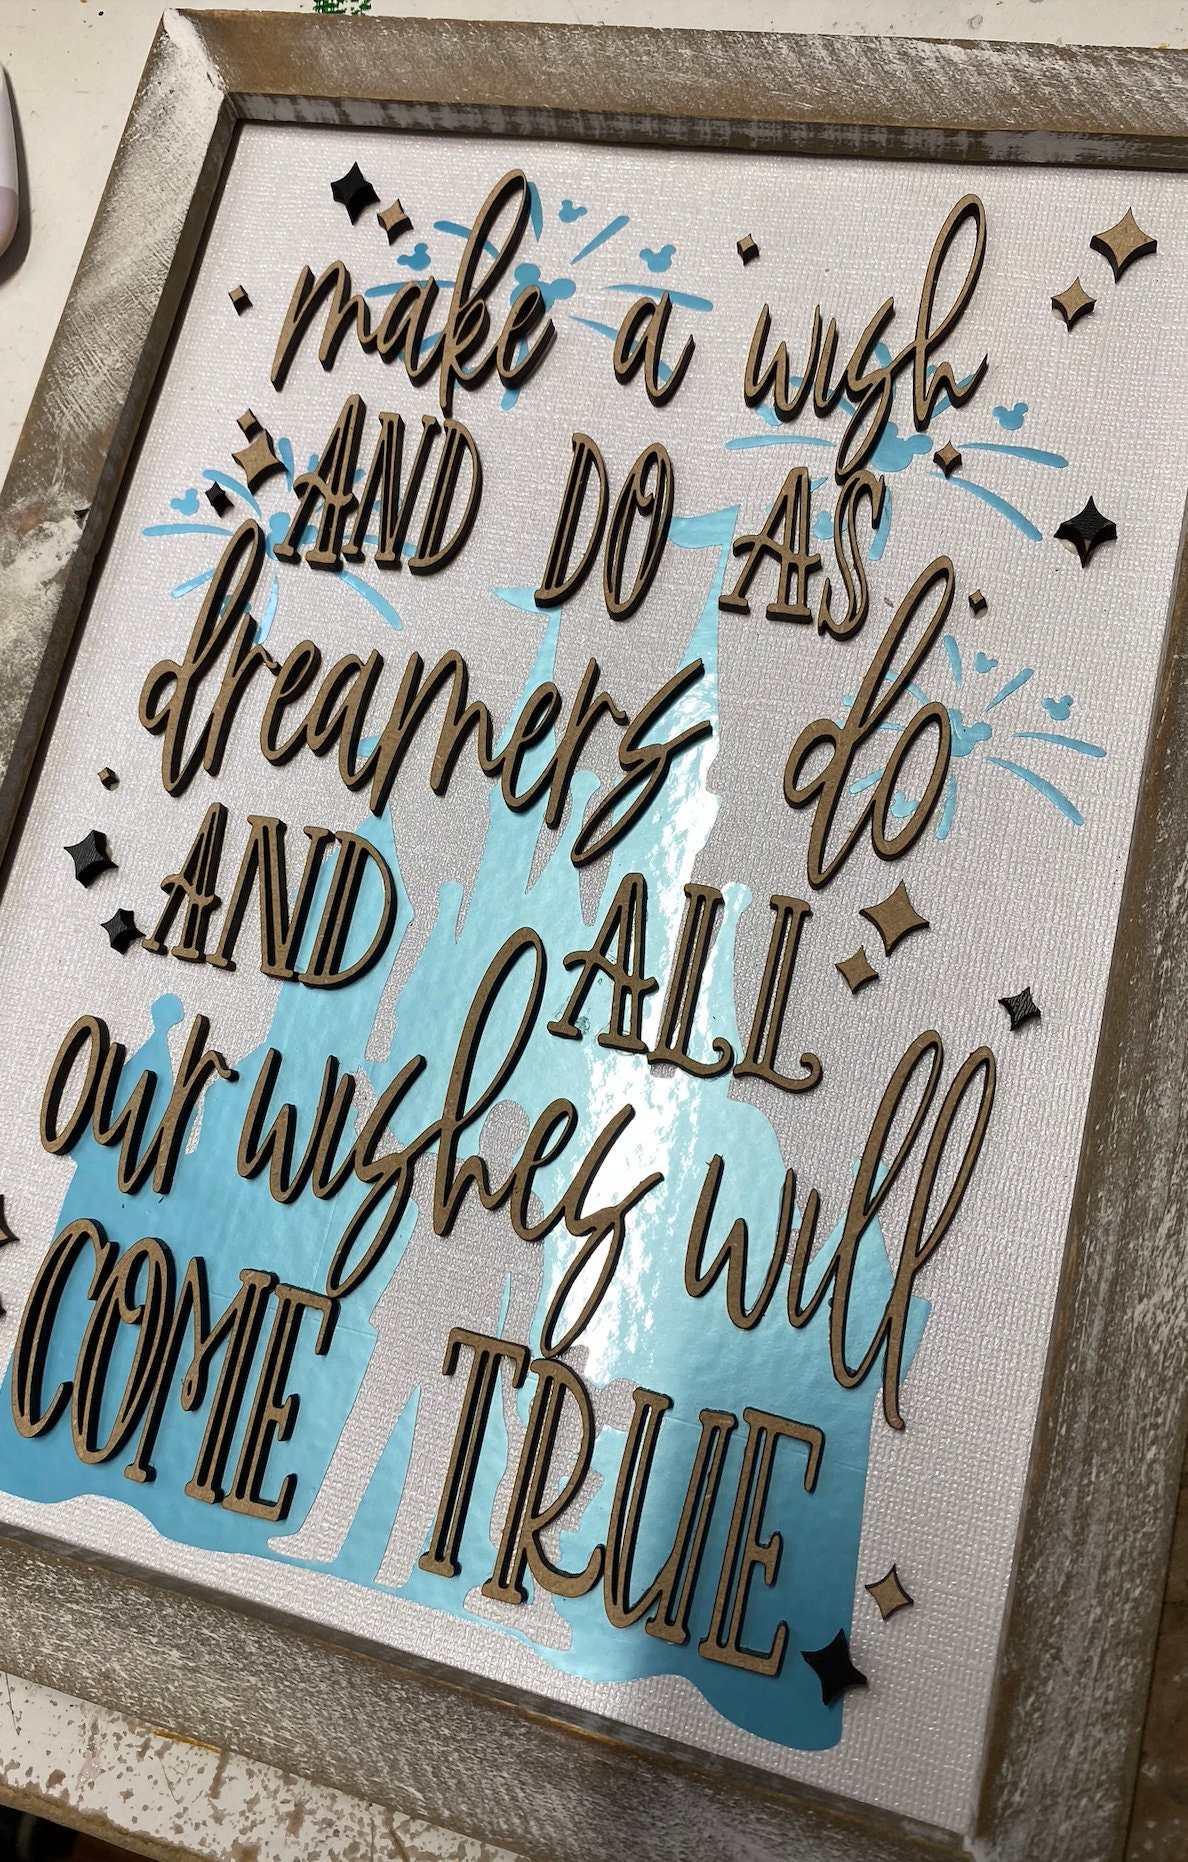 make a wish
AND DO AS
dreamers do
AND ALL
our wishes will
COME TRUE